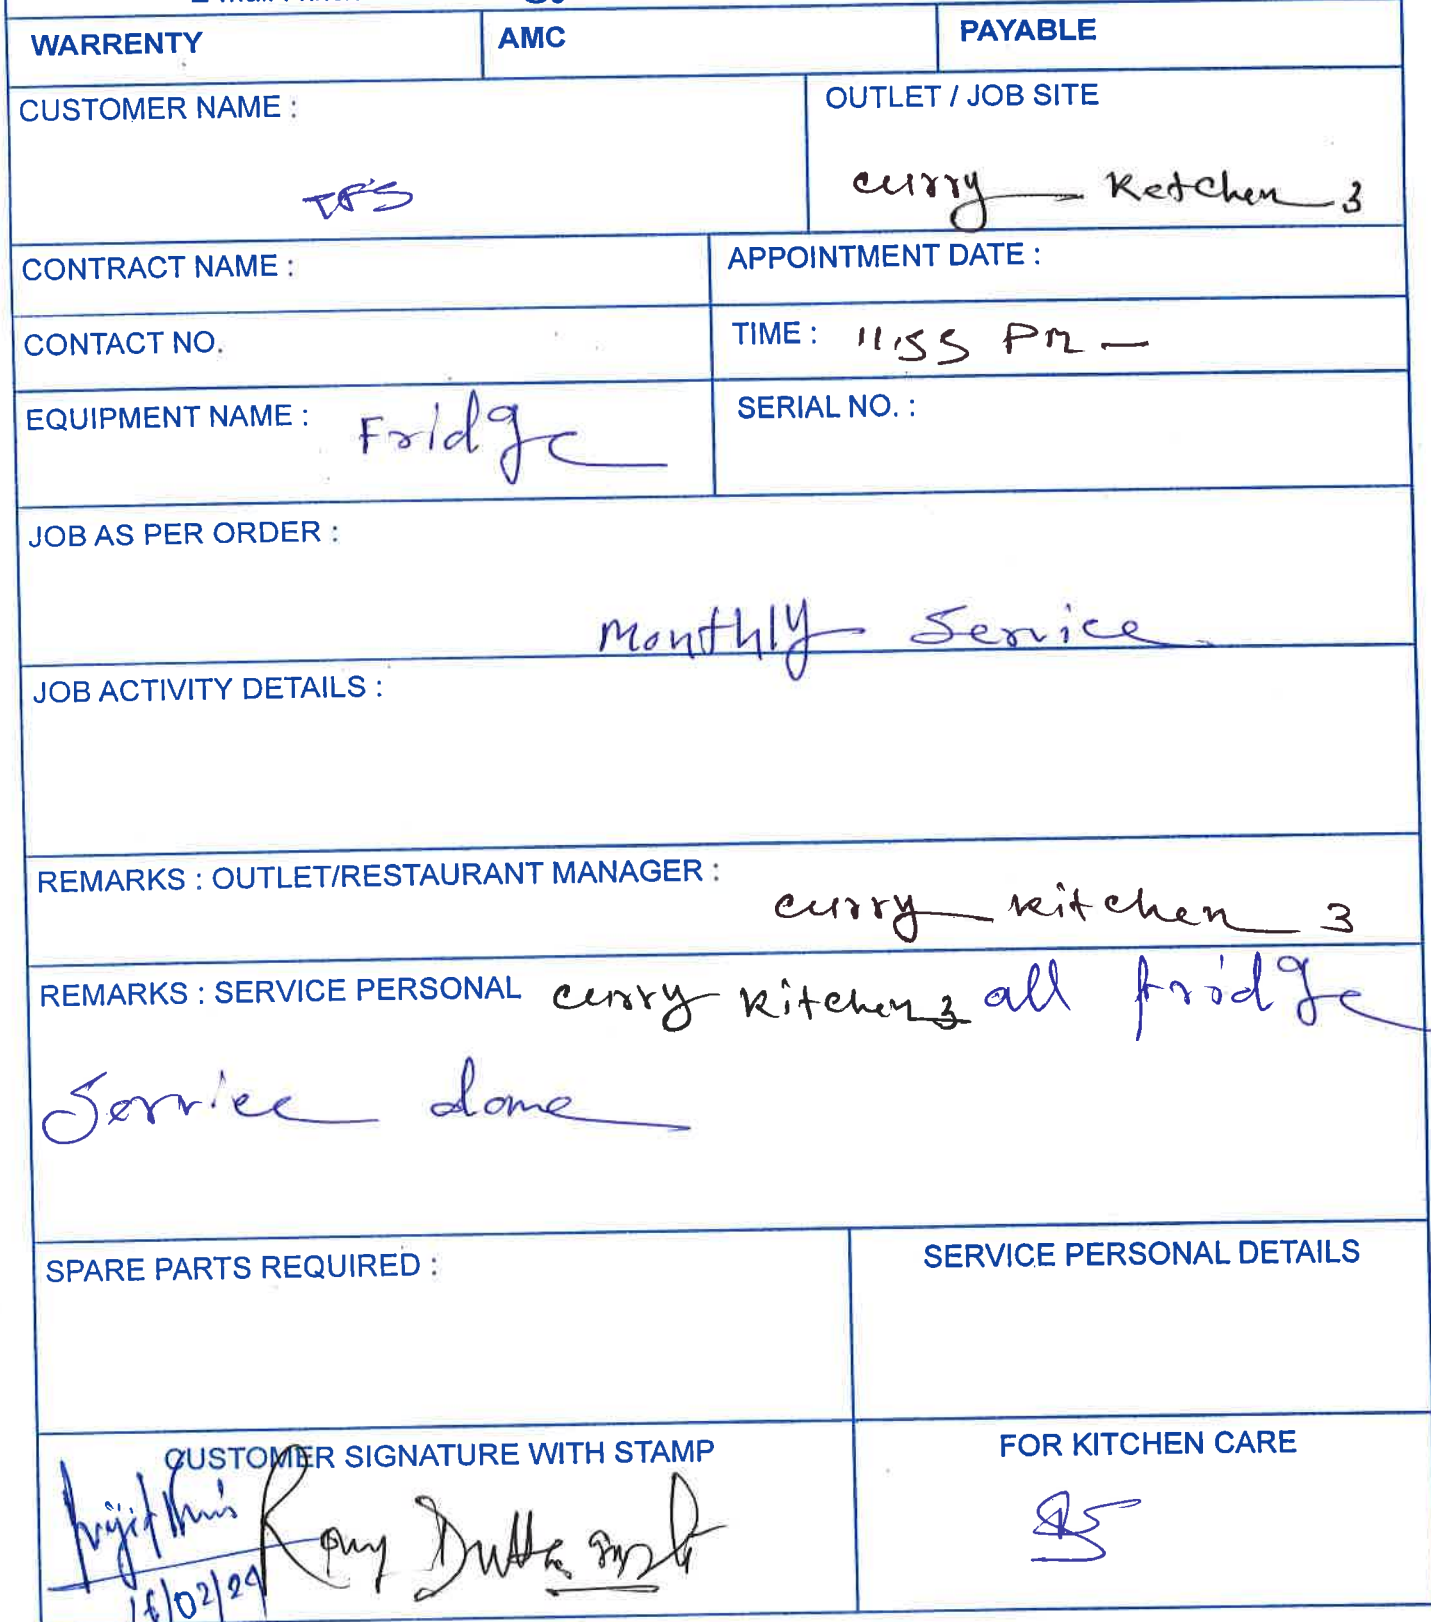 WARRENTY AMC PAYABLE
CUSTOMER NAME : OUTLET / JOB SITE
TFS curry Ketchen 3
CONTRACT NAME : APPOINTMENT DATE :
CONTACT NO. TIME : 11.55 PM
EQUIPMENT NAME : Fridge SERIAL NO. :
JOB AS PER ORDER :
Monthly Service
JOB ACTIVITY DETAILS :
REMARKS : OUTLET/RESTAURANT MANAGER :
curry kitchen 3
REMARKS : SERVICE PERSONAL curry kitchen 3 all fridge
Service done
SPARE PARTS REQUIRED : SERVICE PERSONAL DETAILS
CUSTOMER SIGNATURE WITH STAMP FOR KITCHEN CARE
16/02/24